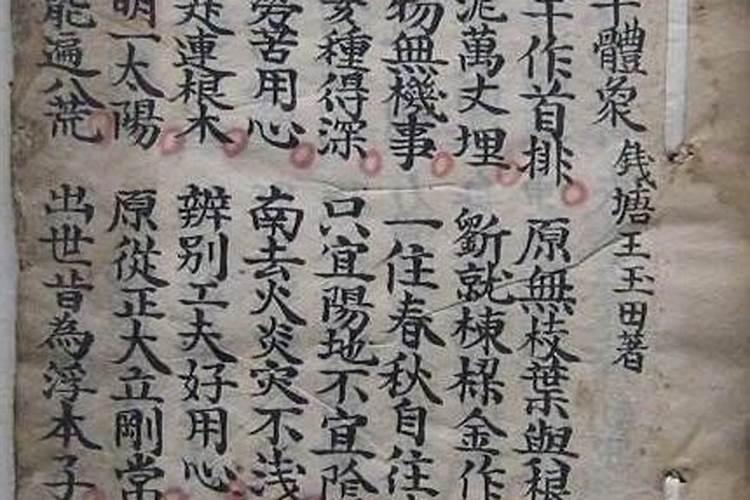 體象 錢塘王玉田著
干作首排 原無枝葉與根
泥萬丈埋 斵就棟樑金作
物無機事 一住春秋自住
種得深 只宜陽地不宜陰
苦用心 南去火炎灾不浅
連根木 辨别工夫好用心
明一太陽 原從正大立剛常
能遍八荒 出世皆為浮本子